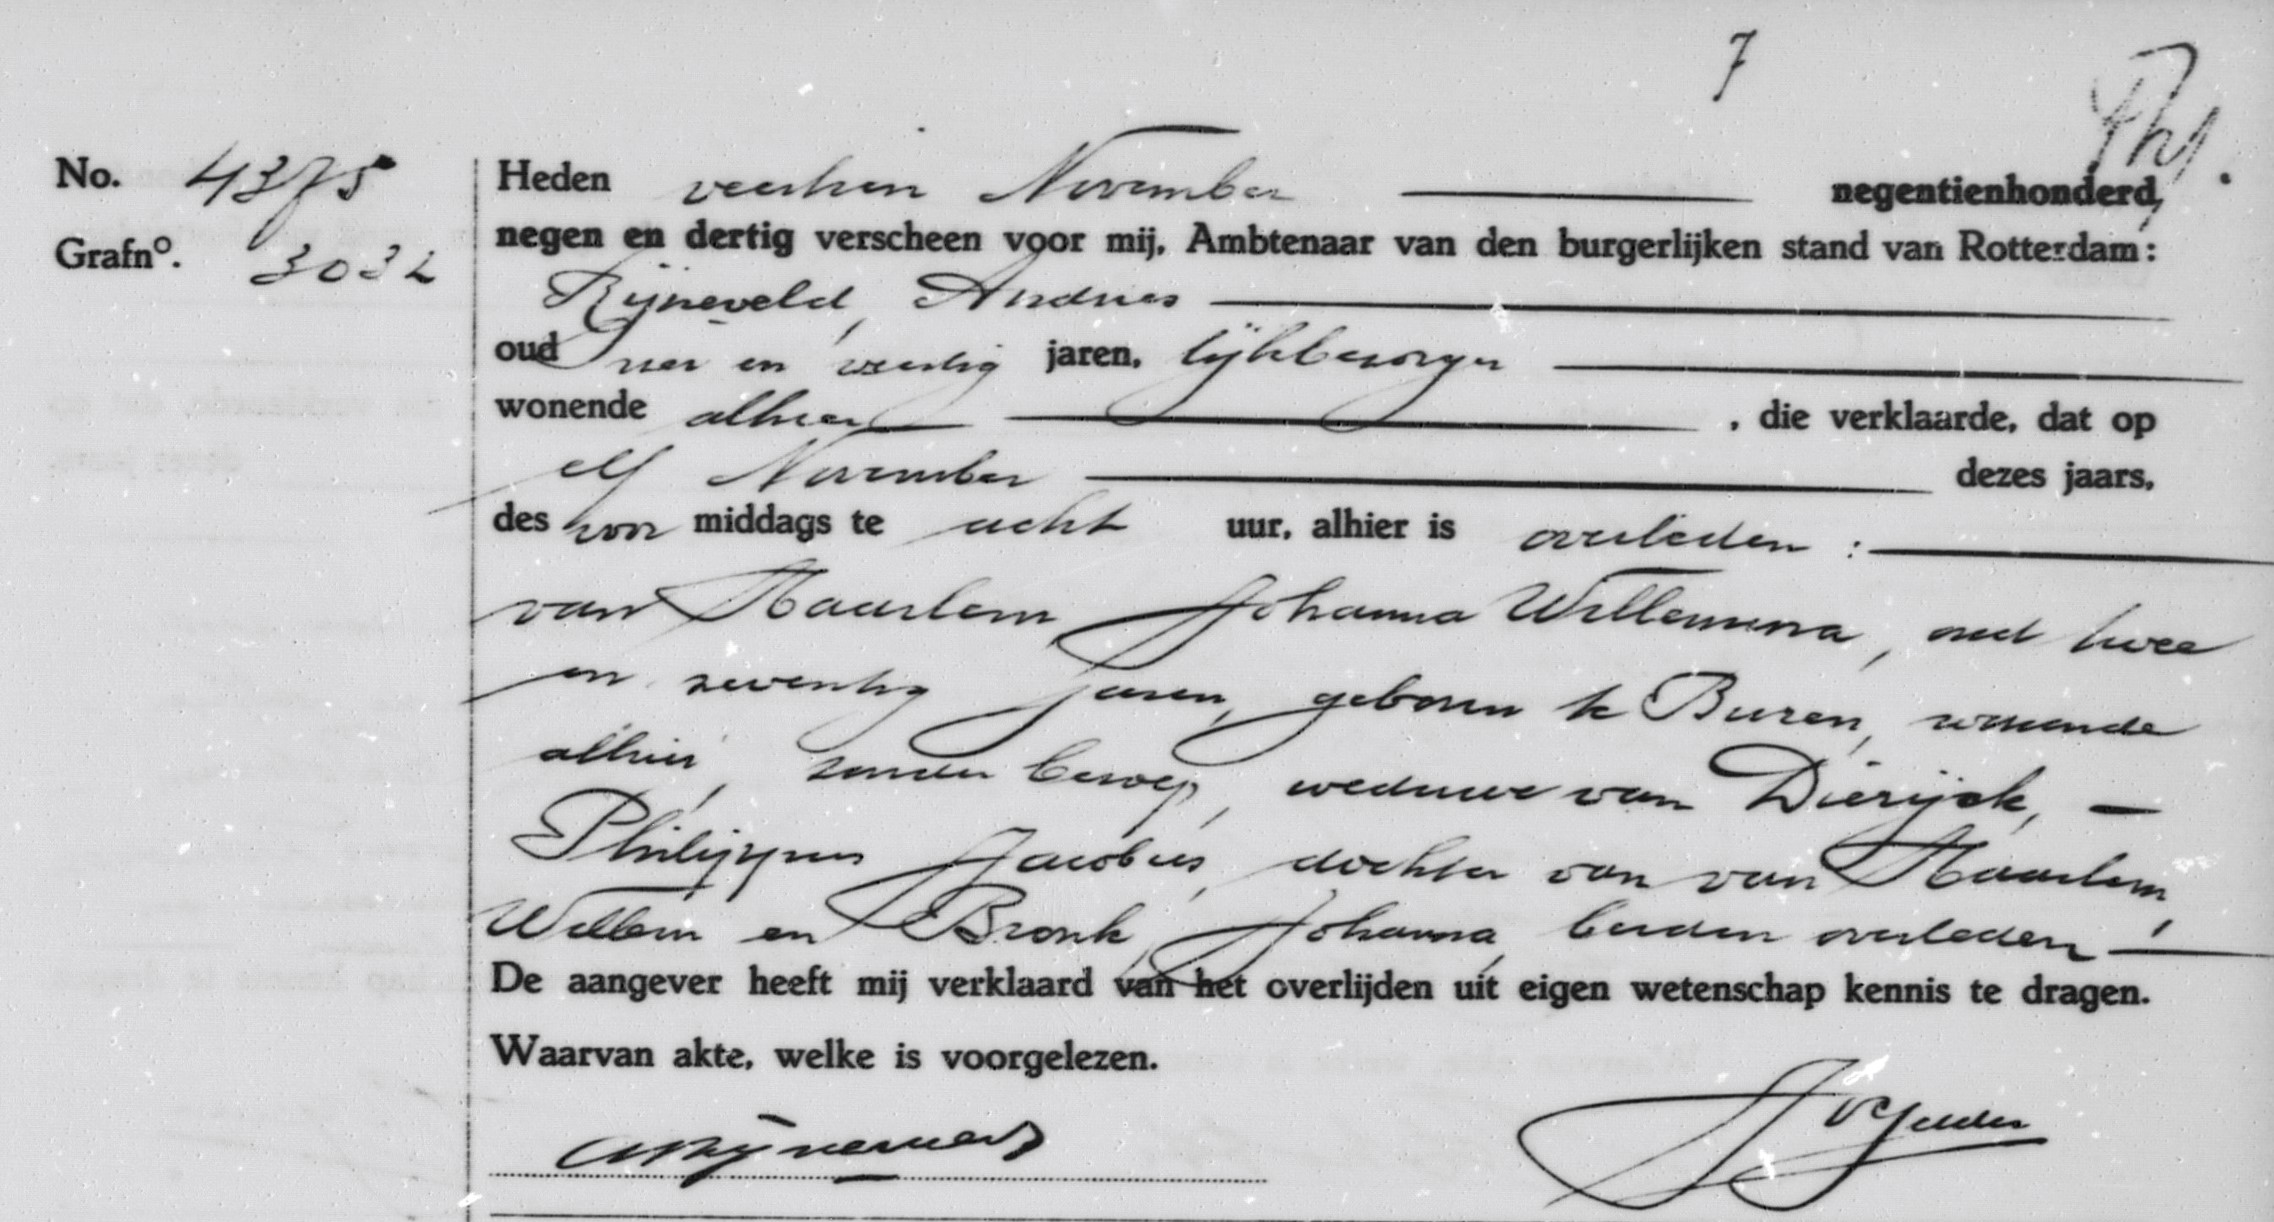 7
No. 4375
Grafno. 3032
Heden veertien November negentienhonderd
negen en dertig verscheen voor mij, Ambtenaar van den burgerlijken stand van Rotterdam:
Rijneveld, Andries
oud vier en veertig jaren, lijkbezorger
wonende alhier, die verklaarde, dat op
elf November dezes jaars,
des voor middags te acht uur, alhier is overleden:
van Haarlem, Johanna Willemina, oud twee
en zeventig jaren, geboren te Buren, wonende
alhier, zonder beroep, weduwe van Dierijck, —
Philippus Jacobus, dochter van van Haarlem,
Willem en Bronk, Johanna, beiden overleden —
De aangever heeft mij verklaard van het overlijden uit eigen wetenschap kennis te dragen.
Waarvan akte, welke is voorgelezen.
ARijneveld